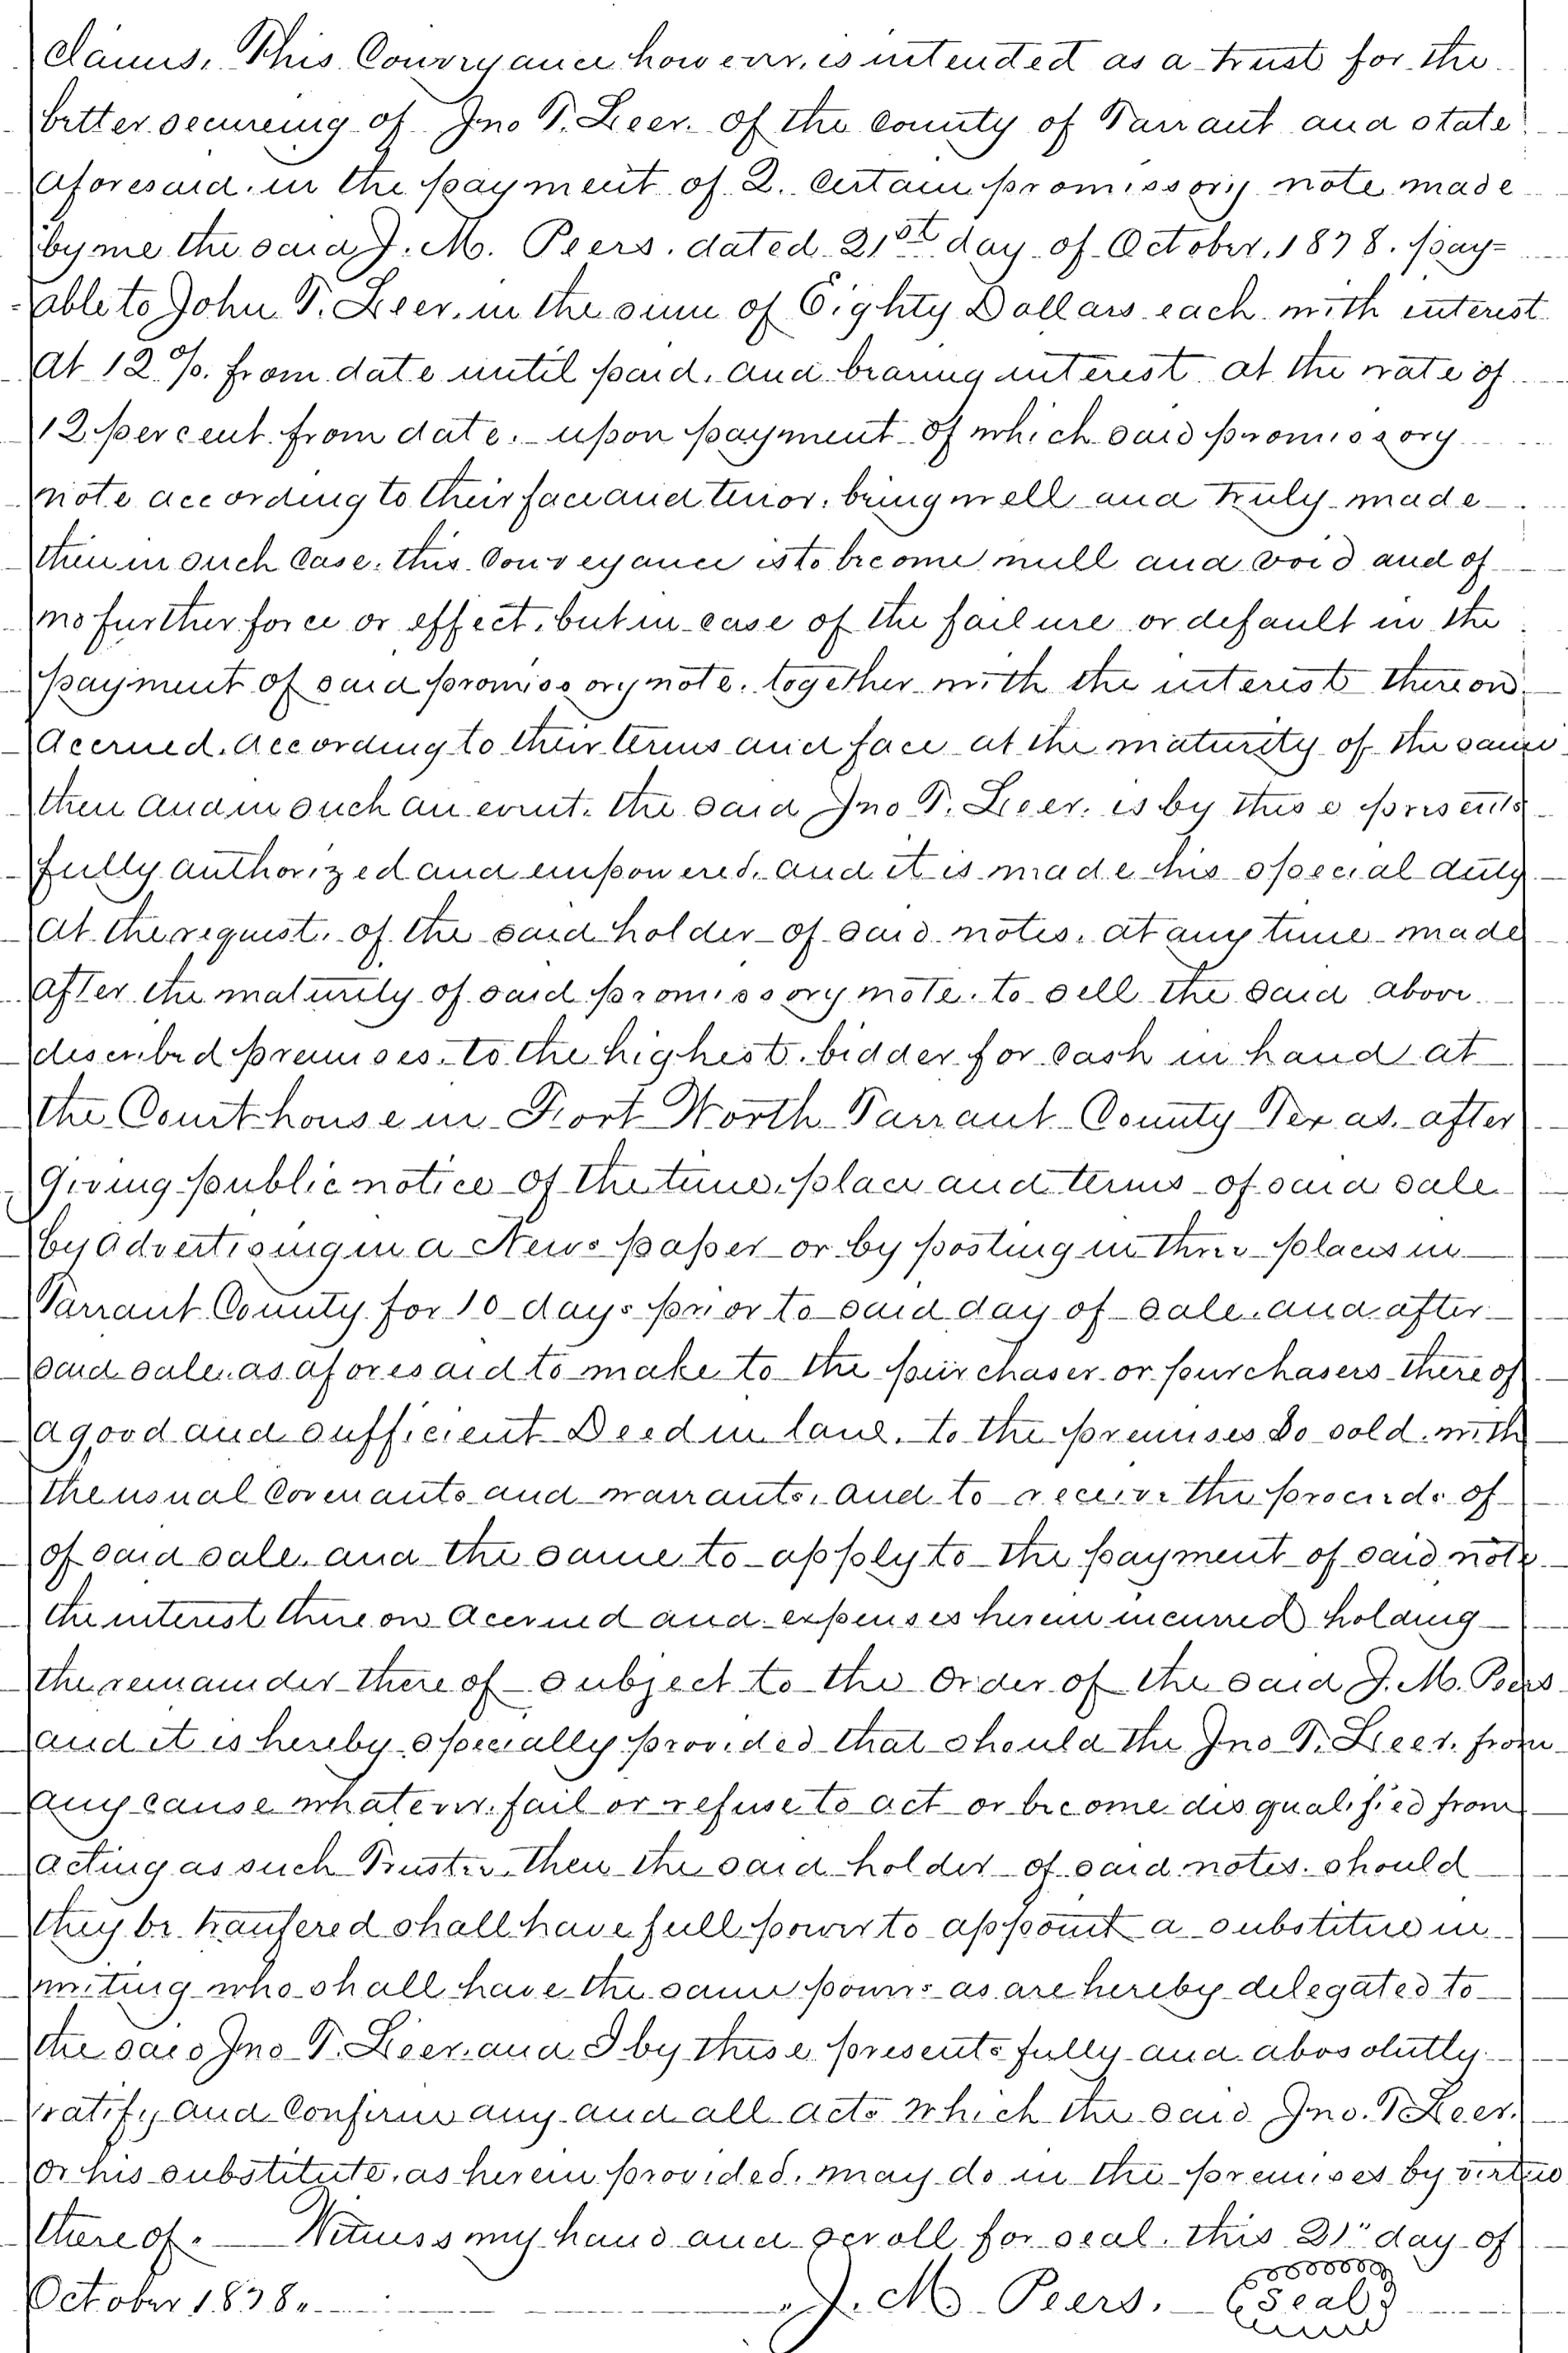 claims. This Conveyance however, is intended as a trust for the
better secureing of Jno T. Leer. of the County of Tarrant and state
aforesaid. in the payment of 2. Certain promissory note made
by me the said J. M. Peers. dated 21st day of October, 1878. pay=
able to John T. Leer. in the sum of Eighty Dollars each with interest
at 12 %. from date until paid. and bearing interest at the rate of
12 per cent. from date. upon payment of which said promissory
note according to their face and tenor. being well and truly made
then in such Case. this Conveyance is to become null and void and of
no further force or effect. but in case of the failure or default in the
payment of said promissory note. together with the interest thereon
Accrued. According to their terms and face at the maturity of the same
then and in such an event. the said Jno T. Leer. is by these presents
fully authorized and empowered. and it is made his special duty
at the request. of the said holder of said notes. at any time made
after the maturity of said promissory note. to sell the said above
described premises. to the highest. bidder for Cash in hand at
the Court house in Fort Worth Tarrant County Texas. after
Giving public notice of the time, place and terms of said sale
by Advertising in a News paper or by posting in three places in
Tarrant County for 10 days prior to said day of sale. and after
said sale. as aforesaid to make to the purchaser or purchasers thereof
a good and sufficient Deed in law. to the premises so sold. with
the usual Covenants and warrants. and to receive the proceeds of
of said sale. and the same to apply to the payment of said note
the interest thereon Accrued and expenses herein incurred holding
the remainder thereof subject to the Order of the said J. M. Peers
and it is hereby specially provided that should the Jno T. Leer. from
any cause whatever. fail or refuse to act or become disqualified from
acting as such Trustee. then the said holder of said notes. should
they be transfered shall have full power to appoint a substitue in
writing who shall have the same powers as are hereby delegated to
the said Jno T. Leer. and I by these presents fully and abosolutly
ratify and Confirm any and all acts which the said Jno. T Leer.
or his substitute. as herein provided. may do in the premises by virtue
thereof. Witness my hand and scroll for seal. this 21" day of
October 1878. J. M. Peers. Seal